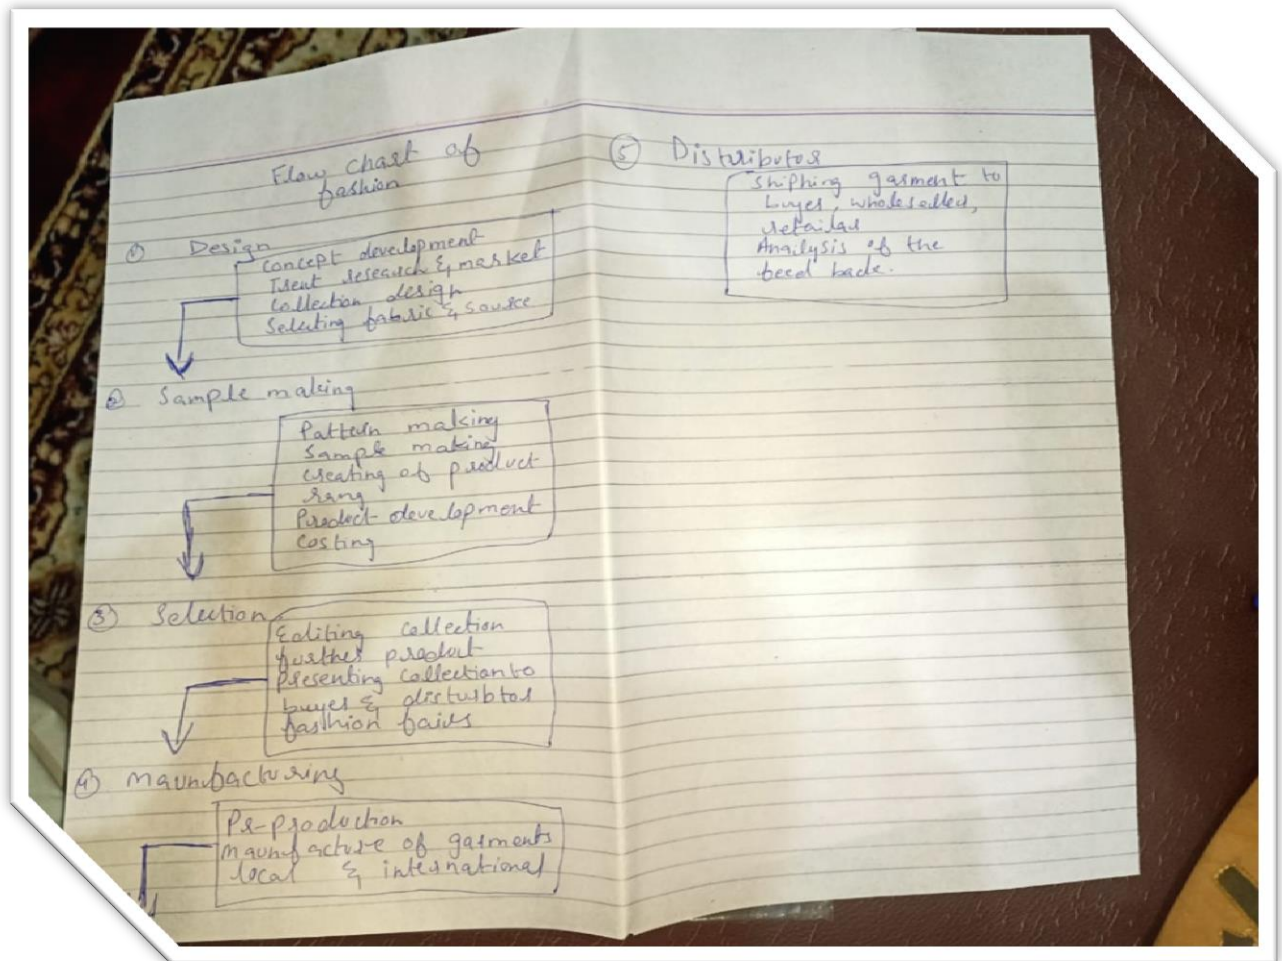 Flow chart of
fashion
① Design
Concept development
Trent research & market
Collection design
Selecting fabric & source
② Sample making
Pattern making
Sample making
creating of product
rang
Product development
Costing
③ Selection
Editing collection
further product
Presenting collection to
buyer & disturbtor
fashion fairs
④ Maunfacturing
Pr-production
Maunfacture of garments
local & international
⑤ Distributor
Shiphing garment to
buyer, wholeselled,
retailar
Anailysis of the
feed back.